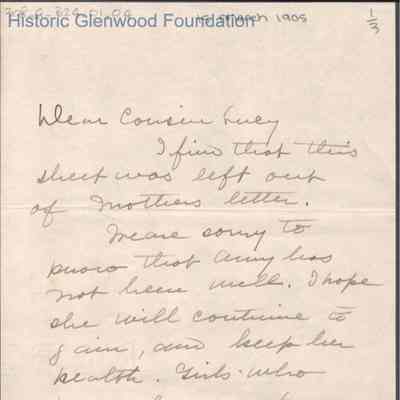 Historic Glenwood Foundation
March 1905
1/3
Dear Cousin Lucy
I find that this
sheet was left out
of Mothers letter.
We are sorry to
know that Amy has
not been well. I hope
she will continue to
gain, and keep her
health. Girls who